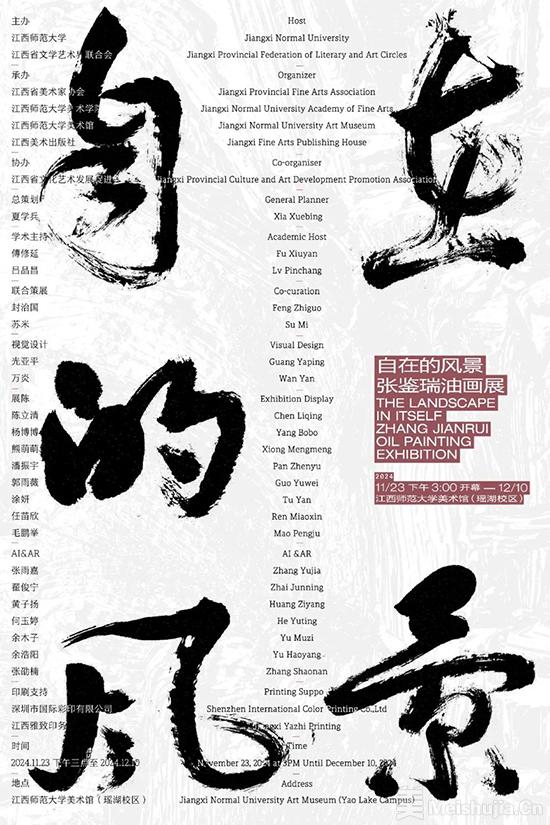 自在
的
风景
主办
江西师范大学
江西省文学艺术界联合会
承办
江西省美术家协会
江西师范大学美术学院
江西师范大学美术馆
江西美术出版社
协办
江西省文化艺术发展促进会
总策划
夏学兵
学术主持
傅修延
吕品昌
联合策展
封治国
苏米
视觉设计
光亚平
万炎
展陈
陈立清
杨博博
熊萌萌
潘振宇
郭雨薇
涂妍
任苗欣
毛鹏举
AI&AR
张雨嘉
翟俊宁
黄子扬
何玉婷
余木子
余浩阳
张劭楠
印刷支持
深圳市国际彩印有限公司
江西雅致印务
时间
2024.11.23 下午三点至 2024.12.10
地点
江西师范大学美术馆（瑶湖校区）
Host
Jiangxi Normal University
Jiangxi Provincial Federation of Literary and Art Circles
Organizer
Jiangxi Provincial Fine Arts Association
Jiangxi Normal University Academy of Fine Arts
Jiangxi Normal University Art Museum
Jiangxi Fine Arts Publishing House
Co-organiser
Jiangxi Provincial Culture and Art Development Promotion Association
General Planner
Xia Xuebing
Academic Host
Fu Xiuyan
Lv Pinchang
Co-curation
Feng Zhiguo
Su Mi
Visual Design
Guang Yaping
Wan Yan
Exhibition Display
Chen Liqing
Yang Bobo
Xiong Mengmeng
Pan Zhenyu
Guo Yuwei
Tu Yan
Ren Miaoxin
Mao Pengju
AI &AR
Zhang Yujia
Zhai Junning
Huang Ziyang
He Yuting
Yu Muzi
Yu Haoyang
Zhang Shaonan
Printing Suppo
Shenzhen International Color Printing Co.,Ltd
Jiangxi Yazhi Printing
Time
November 23, 2024 at 3PM Until December 10, 2024
Address
Jiangxi Normal University Art Museum (Yao Lake Campus)
自在的风景
张鉴瑞油画展
THE LANDSCAPE
IN ITSELF
ZHANG JIANRUI
OIL PAINTING
EXHIBITION
2024
11/23 下午 3:00 开幕 — 12/10
江西师范大学美术馆（瑶湖校区）
Meishujia.Cn